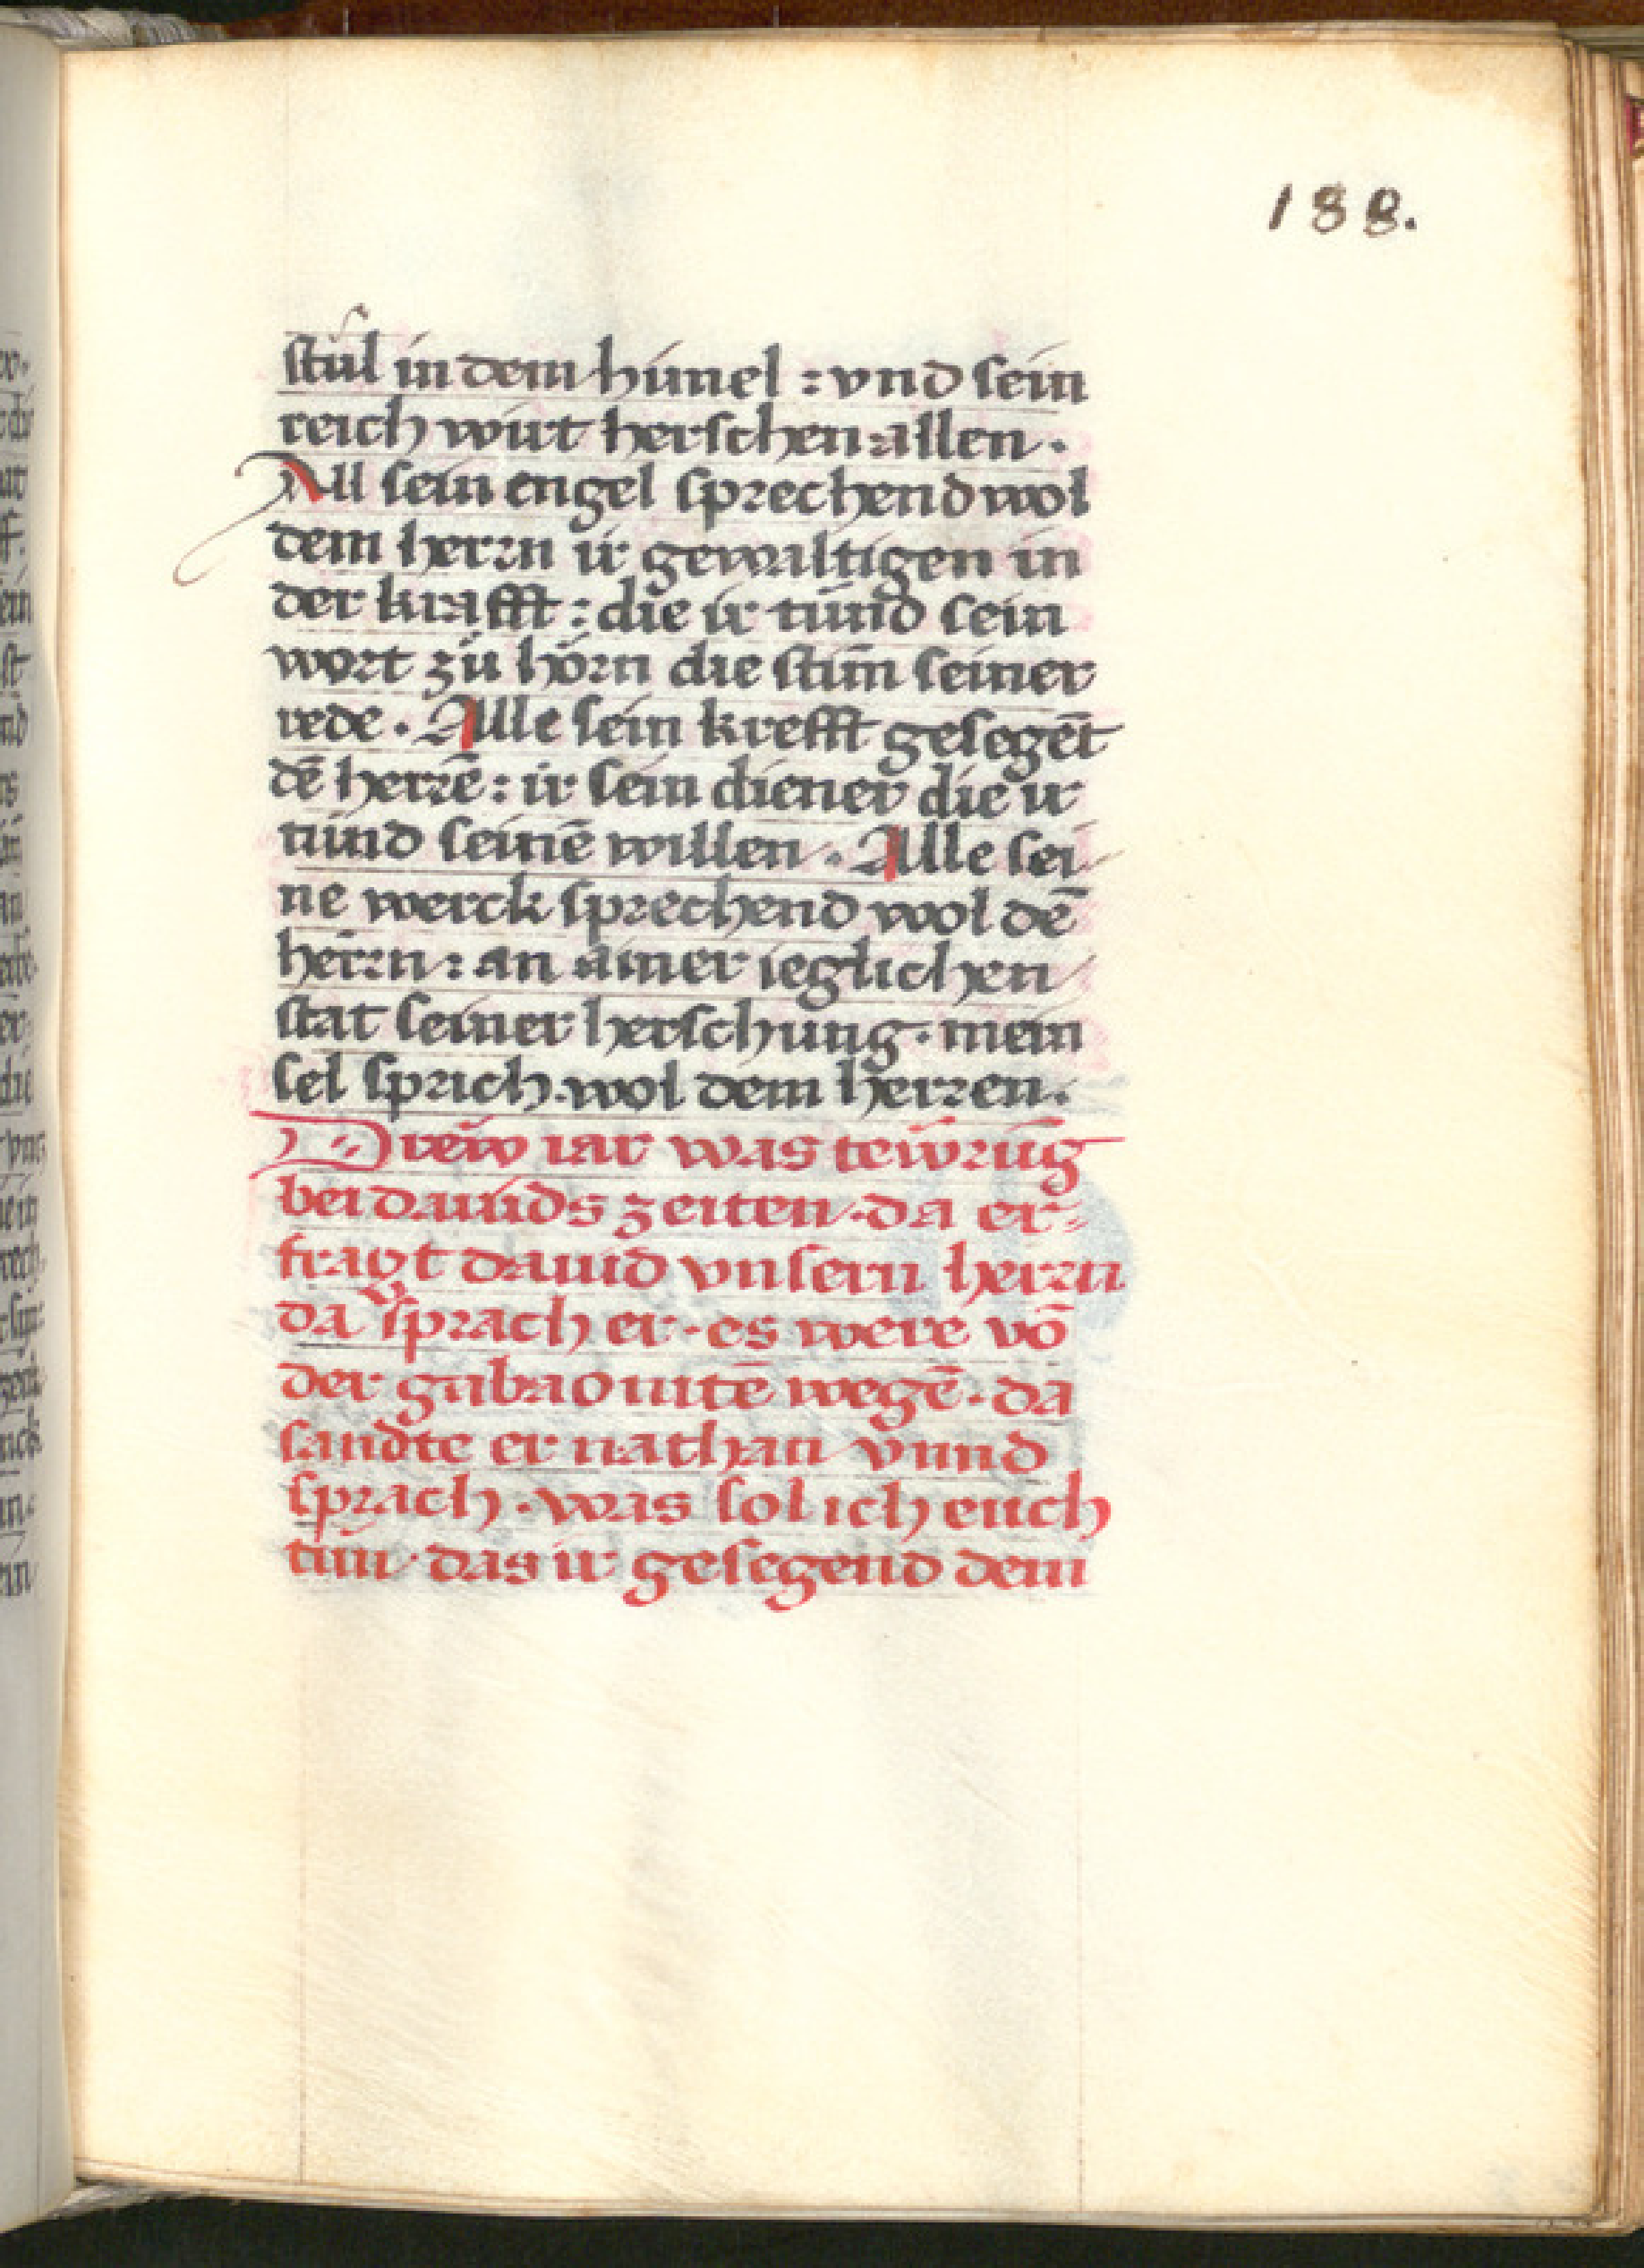 188.
stůl in dem himel : vnd sein
reich wirt herschen allen .
All sein engel sprechend wol
dem herrn ir gewaltigen in
der krafft : die ir tůnd sein
wort zů hörn die stim̄ seiner
rede . Alle sein krefft gesegēt
dē herrē : ir sein diener die ir
tůnd seinē willen . Alle sei
ne werck sprechend wol dē
herrn : an ainer ieglichen
stat seiner herschung . mein
sel sprich wol dem herren .
Drew iar was tewrūg
bei dauids zeiten . da er-
fragt dauid vnsern herrn
da sprach er . es were vō
der gabaonitē wegē . da
sandte er nathan vnnd
sprach . was sol ich euch
tůn das ir gesegend dem